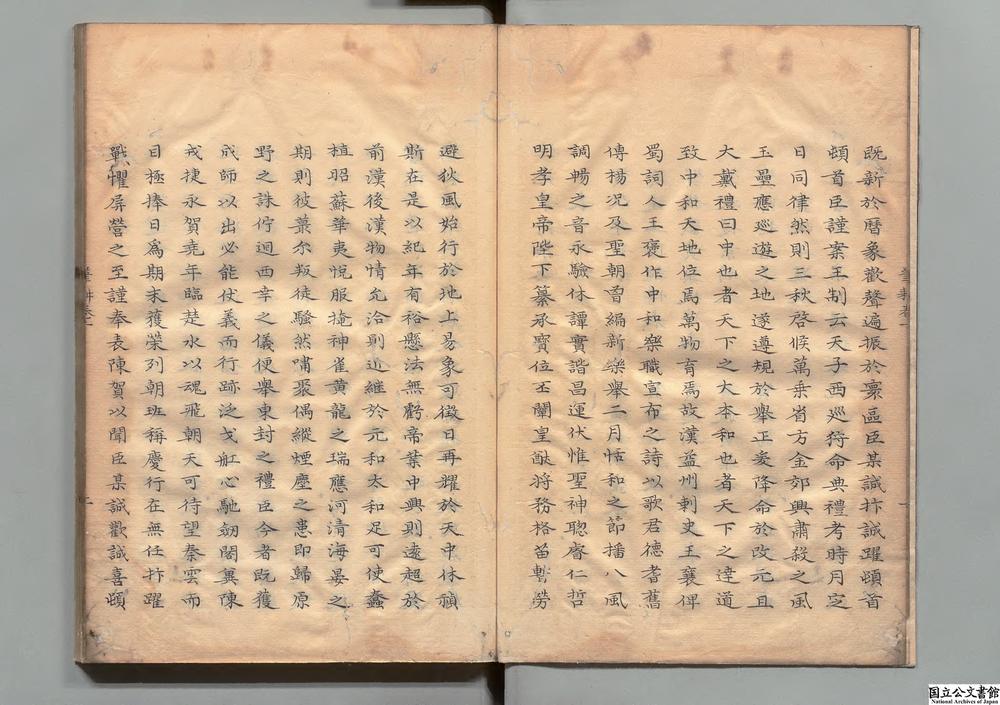 既新於曆象歡聲遍振於寰區臣某誠抃誠躍頓首
頓首臣謹案王制云天子西巡狩命典禮考時月定
日同律然則三秋啓候萬乘省方金郊興肅殺之風
玉壘應巡遊之地遂遵規於舉正爰降命於改元且
大戴禮曰中也者天下之大本和也者天下之達道
致中和天地位焉萬物育焉故漢益州刺史王襄俾
蜀詞人王褒作中和樂職宣布之詩以歌君德耆舊
傳揚況及聖朝曾編新樂舉二月恬和之節播八風
調暢之音永驗休譚實諧昌運伏惟聖神聰睿仁哲
明孝皇帝陛下纂承寶位丕闡皇猷將務格苗暫勞
避狄風始行於地上易象可徵日再耀於天中休禎
斯在是以紀年有裕懸法無虧帝業中興則遠超於
前漢後漢物情允洽則近繼於元和太和足可使蠢
植昭蘇華夷悅服掩神雀黃龍之瑞應河清海晏之
期則彼蕞尔叛徒騷然嘯聚偶縱煙塵之患即歸原
野之誅佇迴西幸之儀便舉東封之禮臣今者既獲
成師以出必能仗義而行跡泛戈舡心馳劒閣冀陳
戎捷永賀堯年臨楚水以魂飛朝天可待望秦雲而
目極捧日爲期末獲榮列朝班稱慶行在無任抃躍
戰懼屏營之至謹奉表陳賀以聞臣某誠歡誠喜頓
国立公文書館
National Archives of Japan